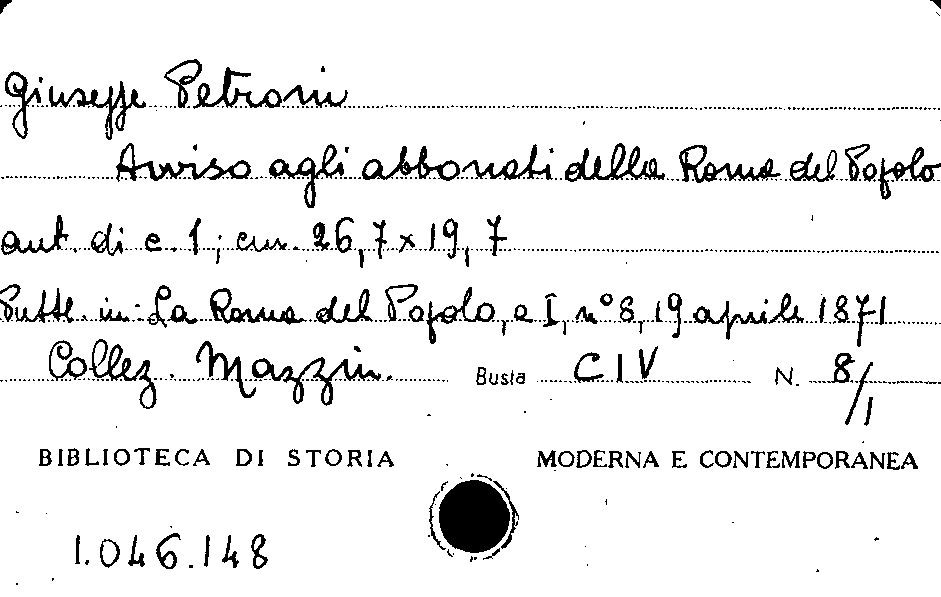 Giuseppe Petroni
Avviso agli abbonati della Roma del Popolo
aut. di c. 1; cm. 26,7 x 19,7
Pubbl. in: La Roma del Popolo, a I, n° 8, 19 aprile 1871
Collez. Mazzin. Busta CIV N. 8/1
BIBLIOTECA DI STORIA MODERNA E CONTEMPORANEA
1.046.148